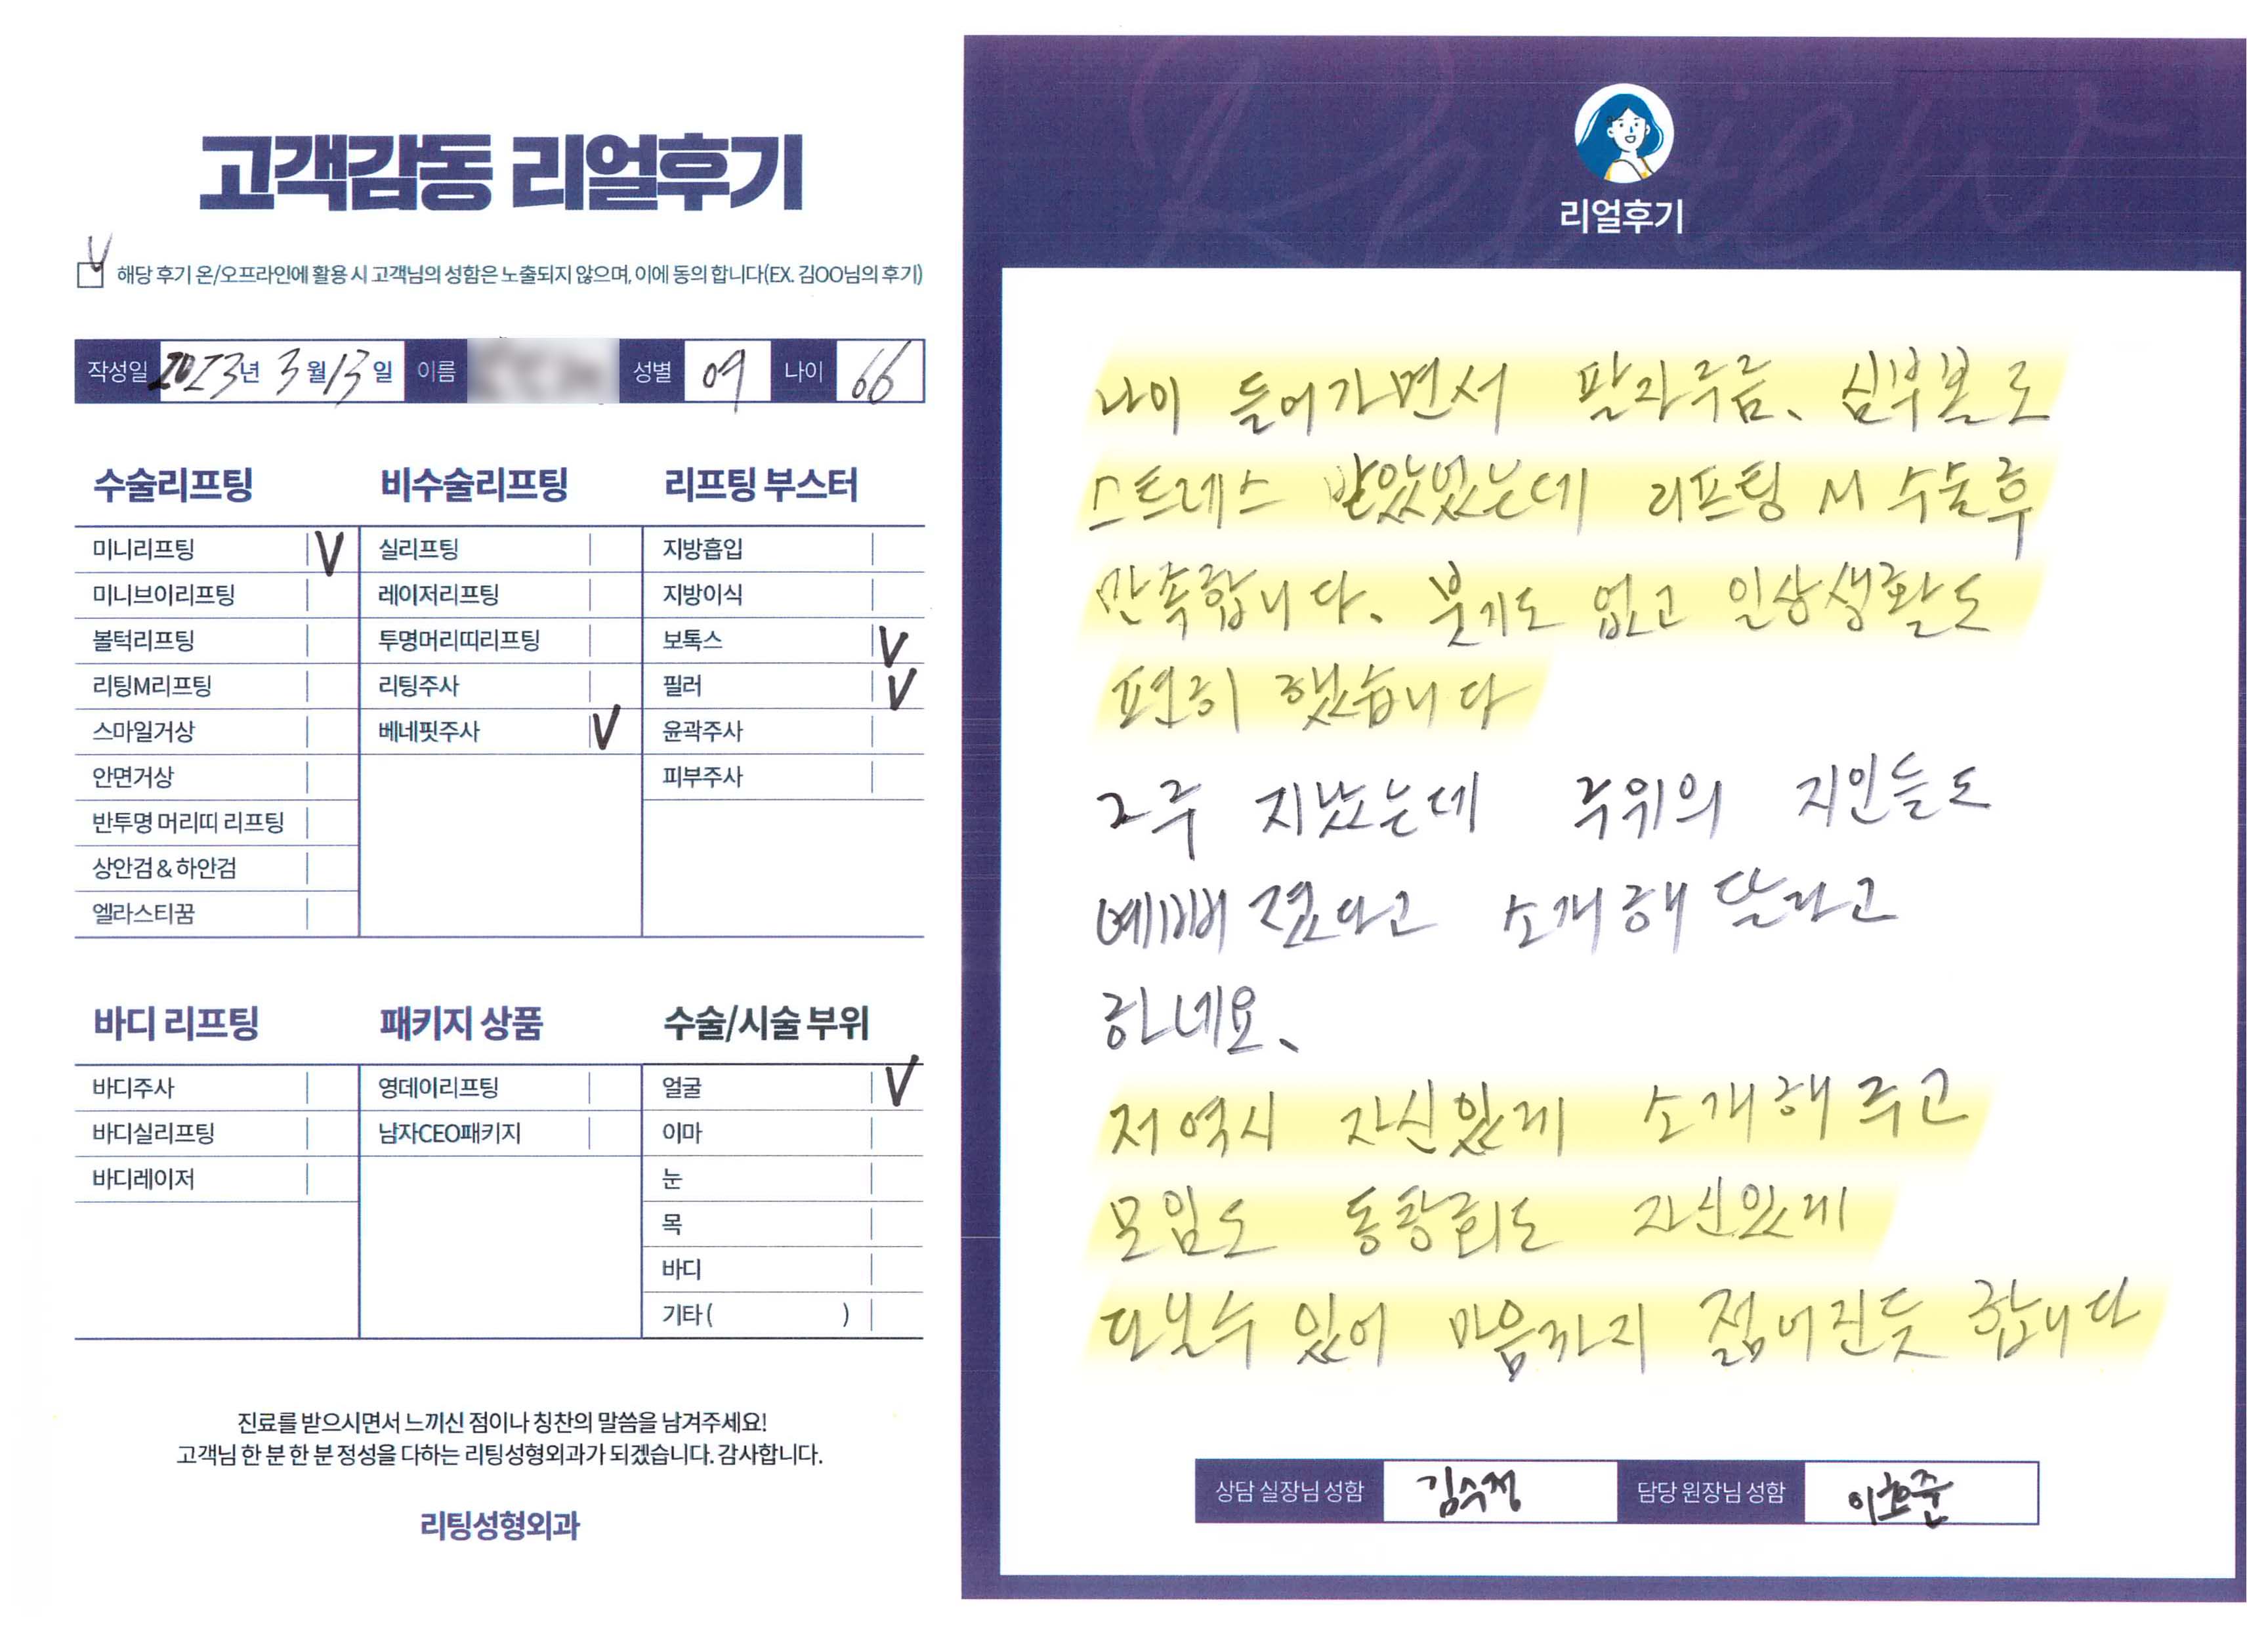 고객감동 리얼후기
V 해당 후기 온/오프라인에 활용 시 고객님의 성함은 노출되지 않으며, 이에 동의 합니다(EX. 김OO님의 후기)
작성일 2023년 3월 13일 이름 성별 여 나이 66
수술리프팅 비수술리프팅 리프팅 부스터
미니리프팅 V 실리프팅 지방흡입
미니브이리프팅 레이저리프팅 지방이식
볼턱리프팅 투명머리띠리프팅 보톡스 V
리팅M리프팅 리팅주사 필러 V
스마일거상 베네핏주사 V 윤곽주사
안면거상 피부주사
반투명 머리띠 리프팅
상안검 & 하안검
엘라스티꿈
바디 리프팅 패키지 상품 수술/시술 부위
바디주사 영데이리프팅 얼굴 V
바디실리프팅 남자CEO패키지 이마
바디레이저 눈
목
바디
기타 ( )
진료를 받으시면서 느끼신 점이나 칭찬의 말씀을 남겨주세요!
고객님 한 분 한 분 정성을 다하는 리팅성형외과가 되겠습니다. 감사합니다.
리팅성형외과
Review
리얼후기
나이 들어가면서 팔자주름、 심부볼로
스트레스 받았었는데 리프팅 M 수술후
만족합니다. 붓기도 없고 일상생활도
편히 했습니다
2주 지났는데 주위의 지인들도
예뻐졌다고 소개해 달라고
하네요、
저 역시 자신있게 소개해 주고
모임도 동창회도 자신있게
다닐수 있어 마음까지 젊어진듯 합니다
상담 실장님 성함 김수정 담당 원장님 성함 이호준